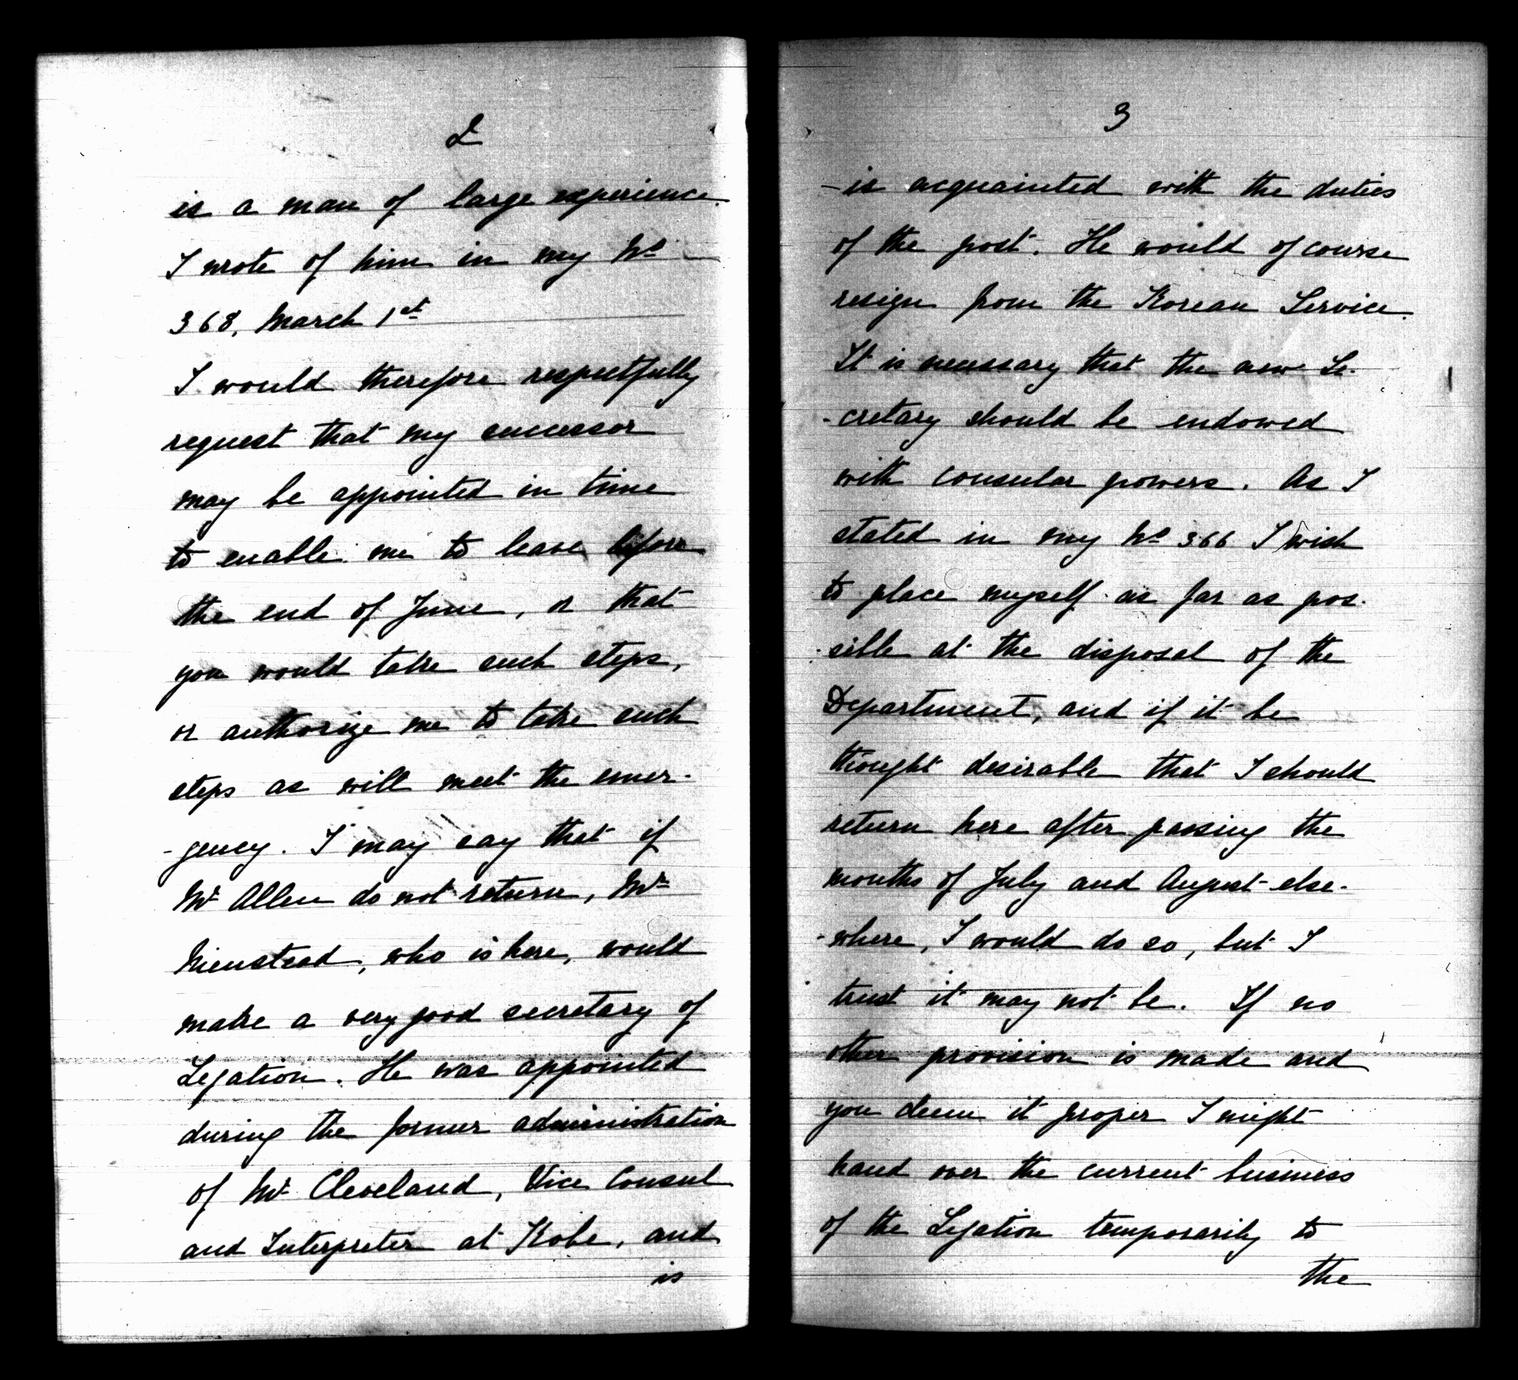 2
is a man of large experience.
I wrote of him in my No
368, March 1st
I would therefore respectfully
request that my successor
may be appointed in time
to enable me to leave before
the end of June, or that
you would take such steps,
or authorize me to take such
steps as will meet the emer-
-gency. I may say that if
Mr Allen do not return, Mr
Nienstead, who is here, would
make a very good secretary of
Legation. He was appointed
during the former administration
of Mr Cleveland, Vice Consul
and Interpreter at Kobe, and
is
3
-is acquainted with the duties
of the post. He would of course
resign from the Korean Service.
It is necessary that the new Se-
-cretary should be endowed
with consular powers. As I
stated in my No 366 I wish
to place myself as far as pos-
-sible at the disposal of the
Department, and if it be
thought desirable that I should
return here after passing the
months of July and August else-
-where, I would do so, but I
trust it may not be. If no
other provision is made and
you deem it proper I might
hand over the current business
of the Legation temporarily to
the